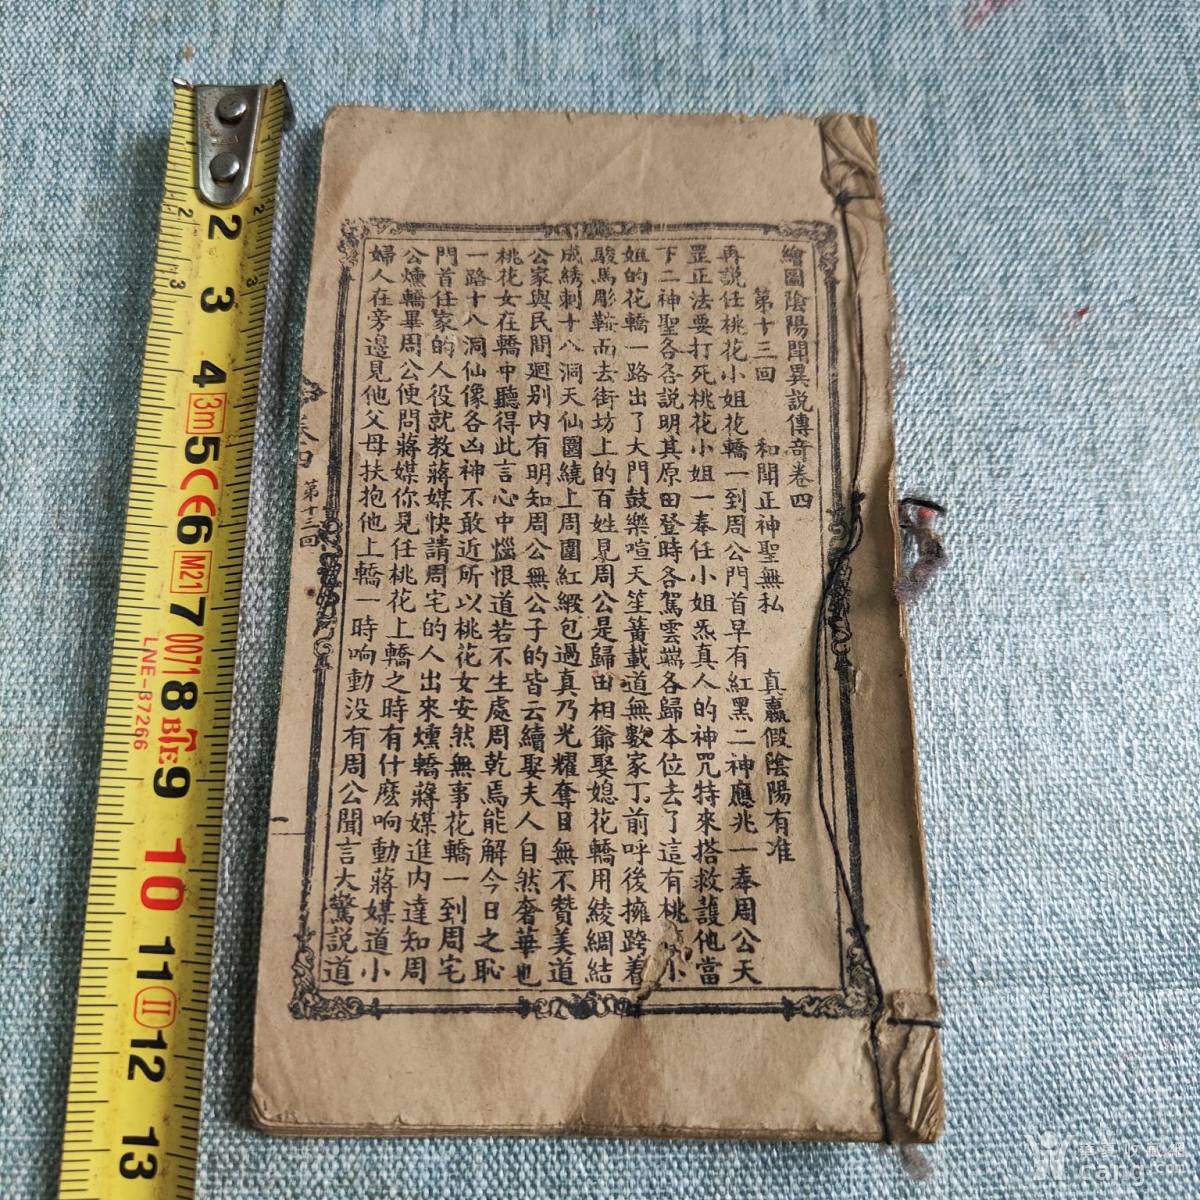 繪圖陰陽聞異說傳奇卷四
第十三回 和聞正神聖無私 真贏假陰陽有准
再説任桃花小姐花轎一到周公門首早有紅黑二神應兆一奉周公天
罡正法要打死桃花小姐一奉任小姐炁真人的神咒特來搭救護他當
下二神聖各各説明其原由登時各駕雲端各歸本位去了這有桃 小
姐的花轎一路出了大門鼓樂喧天笙簧載道無數家丁前呼後擁跨着
駿馬彫鞍而去街坊上的百姓見周公是歸田相爺娶媳花轎用綾綢結
成綉刺十八洞天仙圍繞上周圍紅緞包過真乃光耀奪目無不贊美道
公家與民間迥别内有明知周公無公子的皆云續娶夫人自然奢華也
桃花女在轎中聽得此言心中惱恨道若不生處周乾焉能解今日之恥
一路十八洞仙像各凶神不敢近所以桃花女安然無事花轎一到周宅
門首任家的人役就教蔣媒快請周宅的人出來燻轎蔣媒進内達知周
公燻轎畢周公便問蔣媒你見任桃花上轎之時有什麽响動蔣媒道小
婦人在旁邊見他父母扶抱他上轎一時响動没有周公聞言大驚説道
卷四 第十三回
2 3 4 5 6 7 8 9 10 11 12 13
2 3
2 3
3m CE M21 0071 II
LNE-87266